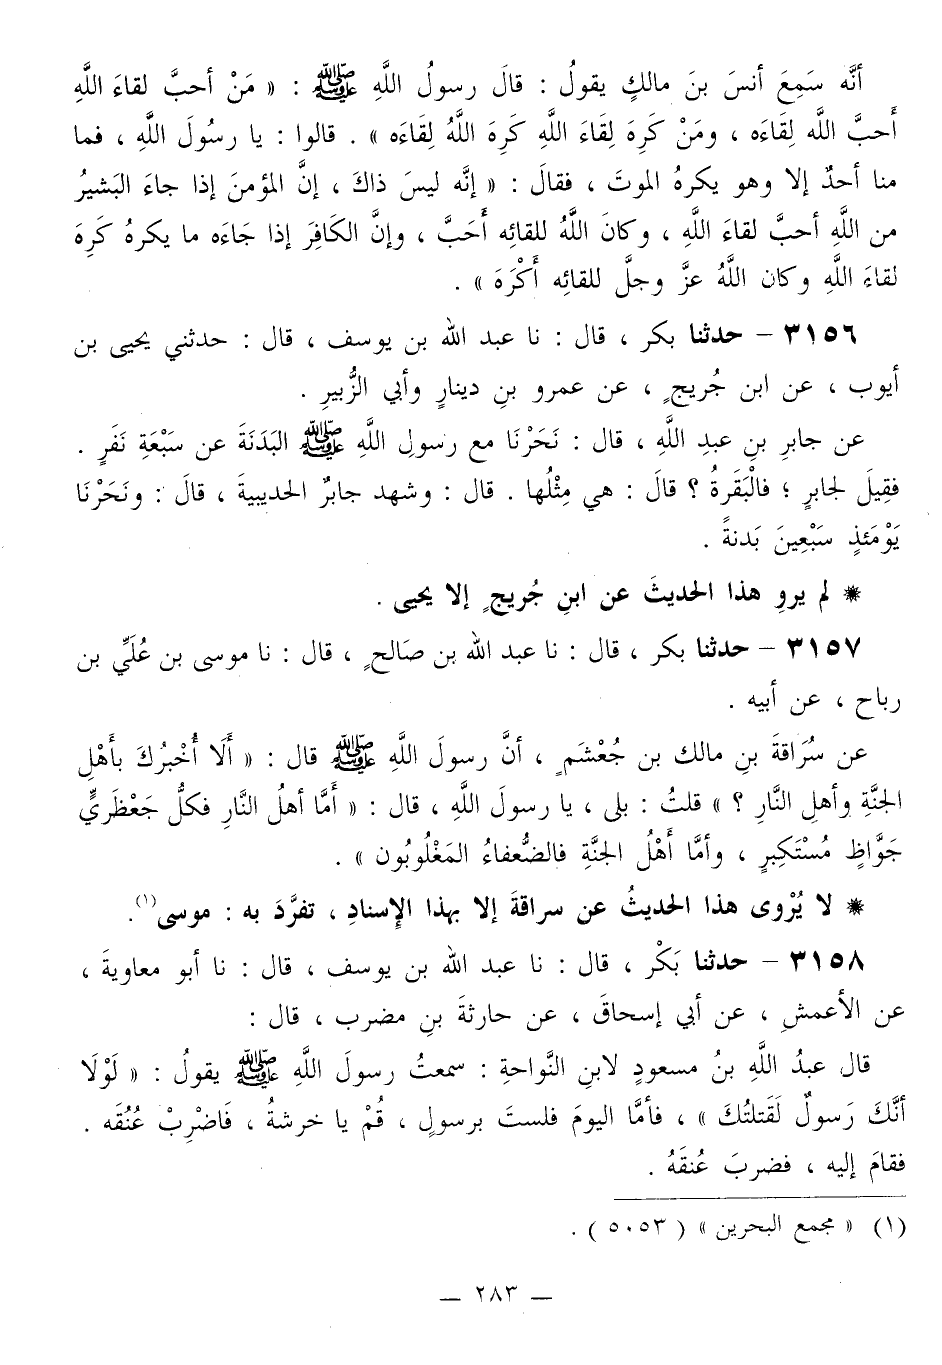 أنَّه سَمِعَ أنسَ بنَ مالكٍ يقولُ : قالَ رسولُ اللَّهِ ﷺ : « مَنْ أحبَّ لقاءَ اللَّهِ
أَحبَّ اللَّه لِقَاءَه ، ومَنْ كَرِهَ لِقَاءَ اللَّهِ كَرِهَ اللَّهُ لِقاءَه » . قالوا : يا رسُولَ اللَّهِ ، فما
منا أحدٌ إلا وهو يكرهُ الموتَ ، فقالَ : « إنَّه ليسَ ذاكَ ، إنَّ المؤمنَ إذا جاءَ البَشيرُ
من اللَّهِ أحبَّ لقاءَ اللَّهِ ، وكانَ اللَّهُ للقائِه أَحَبَّ ، وإنَّ الكَافِرَ إذا جَاءَه ما يكرهُ كَرِهَ
لقاءَ اللَّهِ وكان اللَّهُ عزَّ وجلَّ للقائِه أَكْرَهَ » .
٣١٥٦ – حدثنا بكر ، قال : نا عبد الله بن يوسف ، قال : حدثني يحيى بن
أيوب ، عن ابن جُريجٍ ، عن عمرو بنِ دينارٍ وأبي الزُّبيرِ .
عن جابرِ بنِ عبدِ اللَّهِ ، قال : نَحَرْنَا مع رسولِ اللَّهِ ﷺ البَدَنَةَ عن سَبْعَةِ نَفَرٍ .
فقِيلَ لجابرٍ ؛ فالْبَقَرةُ ؟ قالَ : هي مِثْلُها . قال : وشهد جابرٌ الحديبيةَ ، قالَ : ونَحَرْنَا
يَوْمَئذٍ سَبْعِينَ بَدنةً .
* لم يروِ هذا الحديثَ عن ابنِ جُريجٍ إلا يحيى .
٣١٥٧ – حدثنا بكر ، قال : نا عبد الله بن صَالحٍ ، قال : نا موسى بن عُلَيِّ بن
رباح ، عن أبيه .
عن سُرَاقةَ بنِ مالك بن جُعْشَمٍ ، أنَّ رسولَ اللَّهِ ﷺ قال : « أَلَا أُخْبرُكَ بأهْلِ
الجنَّةِ وأهلِ النَّارِ ؟ » قلتُ : بلى ، يا رسولَ اللَّهِ ، قال : « أمَّا أهلُ النَّارِ فكلُّ جَعْظَريٍّ
جَوَّاظٍ مُسْتَكبِرٍ ، وأمَّا أَهْلُ الجنَّةِ فالضُّعفاءُ المَغْلُوبُون » .
* لا يُرْوى هذا الحديثُ عن سراقةَ إلا بهذا الإسنادِ ، تفرَّدَ به : موسى(١).
٣١٥٨ – حدثنا بَكْر ، قال : نا عبد الله بن يوسف ، قال : نا أبو معاويةَ ،
عن الأعمشِ ، عن أبي إسحاقَ ، عن حارثةَ بنِ مضرب ، قال :
قال عبدُ اللَّهِ بنُ مسعودٍ لابنِ النَّواحةِ : سمعتُ رسولَ اللَّهِ ﷺ يقولُ : « لَوْلَا
أنَّكَ رَسولٌ لَقَتلتُكَ » ، فأمَّا اليومَ فلستَ برسولٍ ، قُمْ يا خرشةُ ، فَاضْرِبْ عُنُقَه .
فقامَ إليه ، فضربَ عُنقَهُ .
(١) « مجمع البحرين » ( ٥٠٥٣ ) .
— ٢٨٣ —